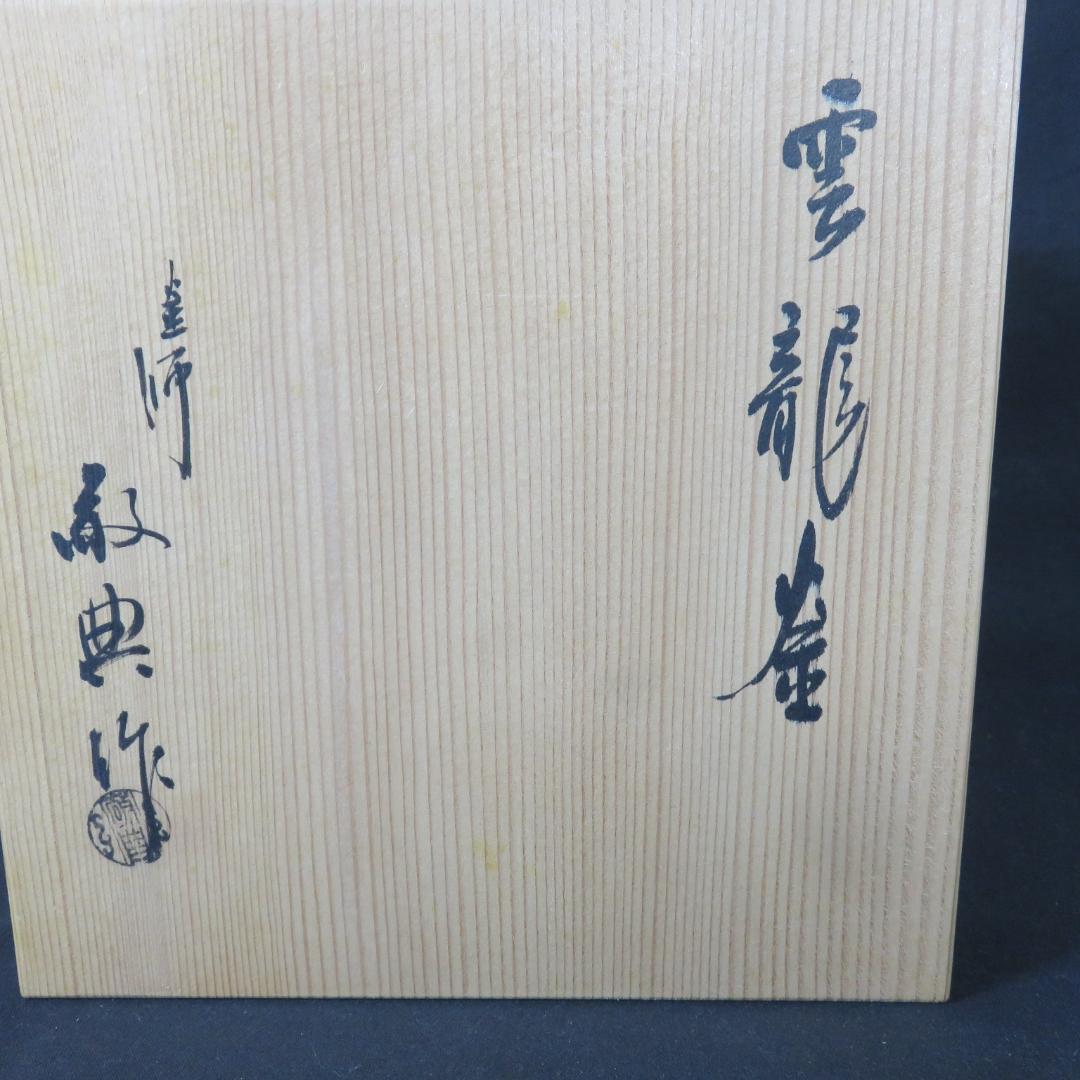 雲龍釜
釜師
敬典作